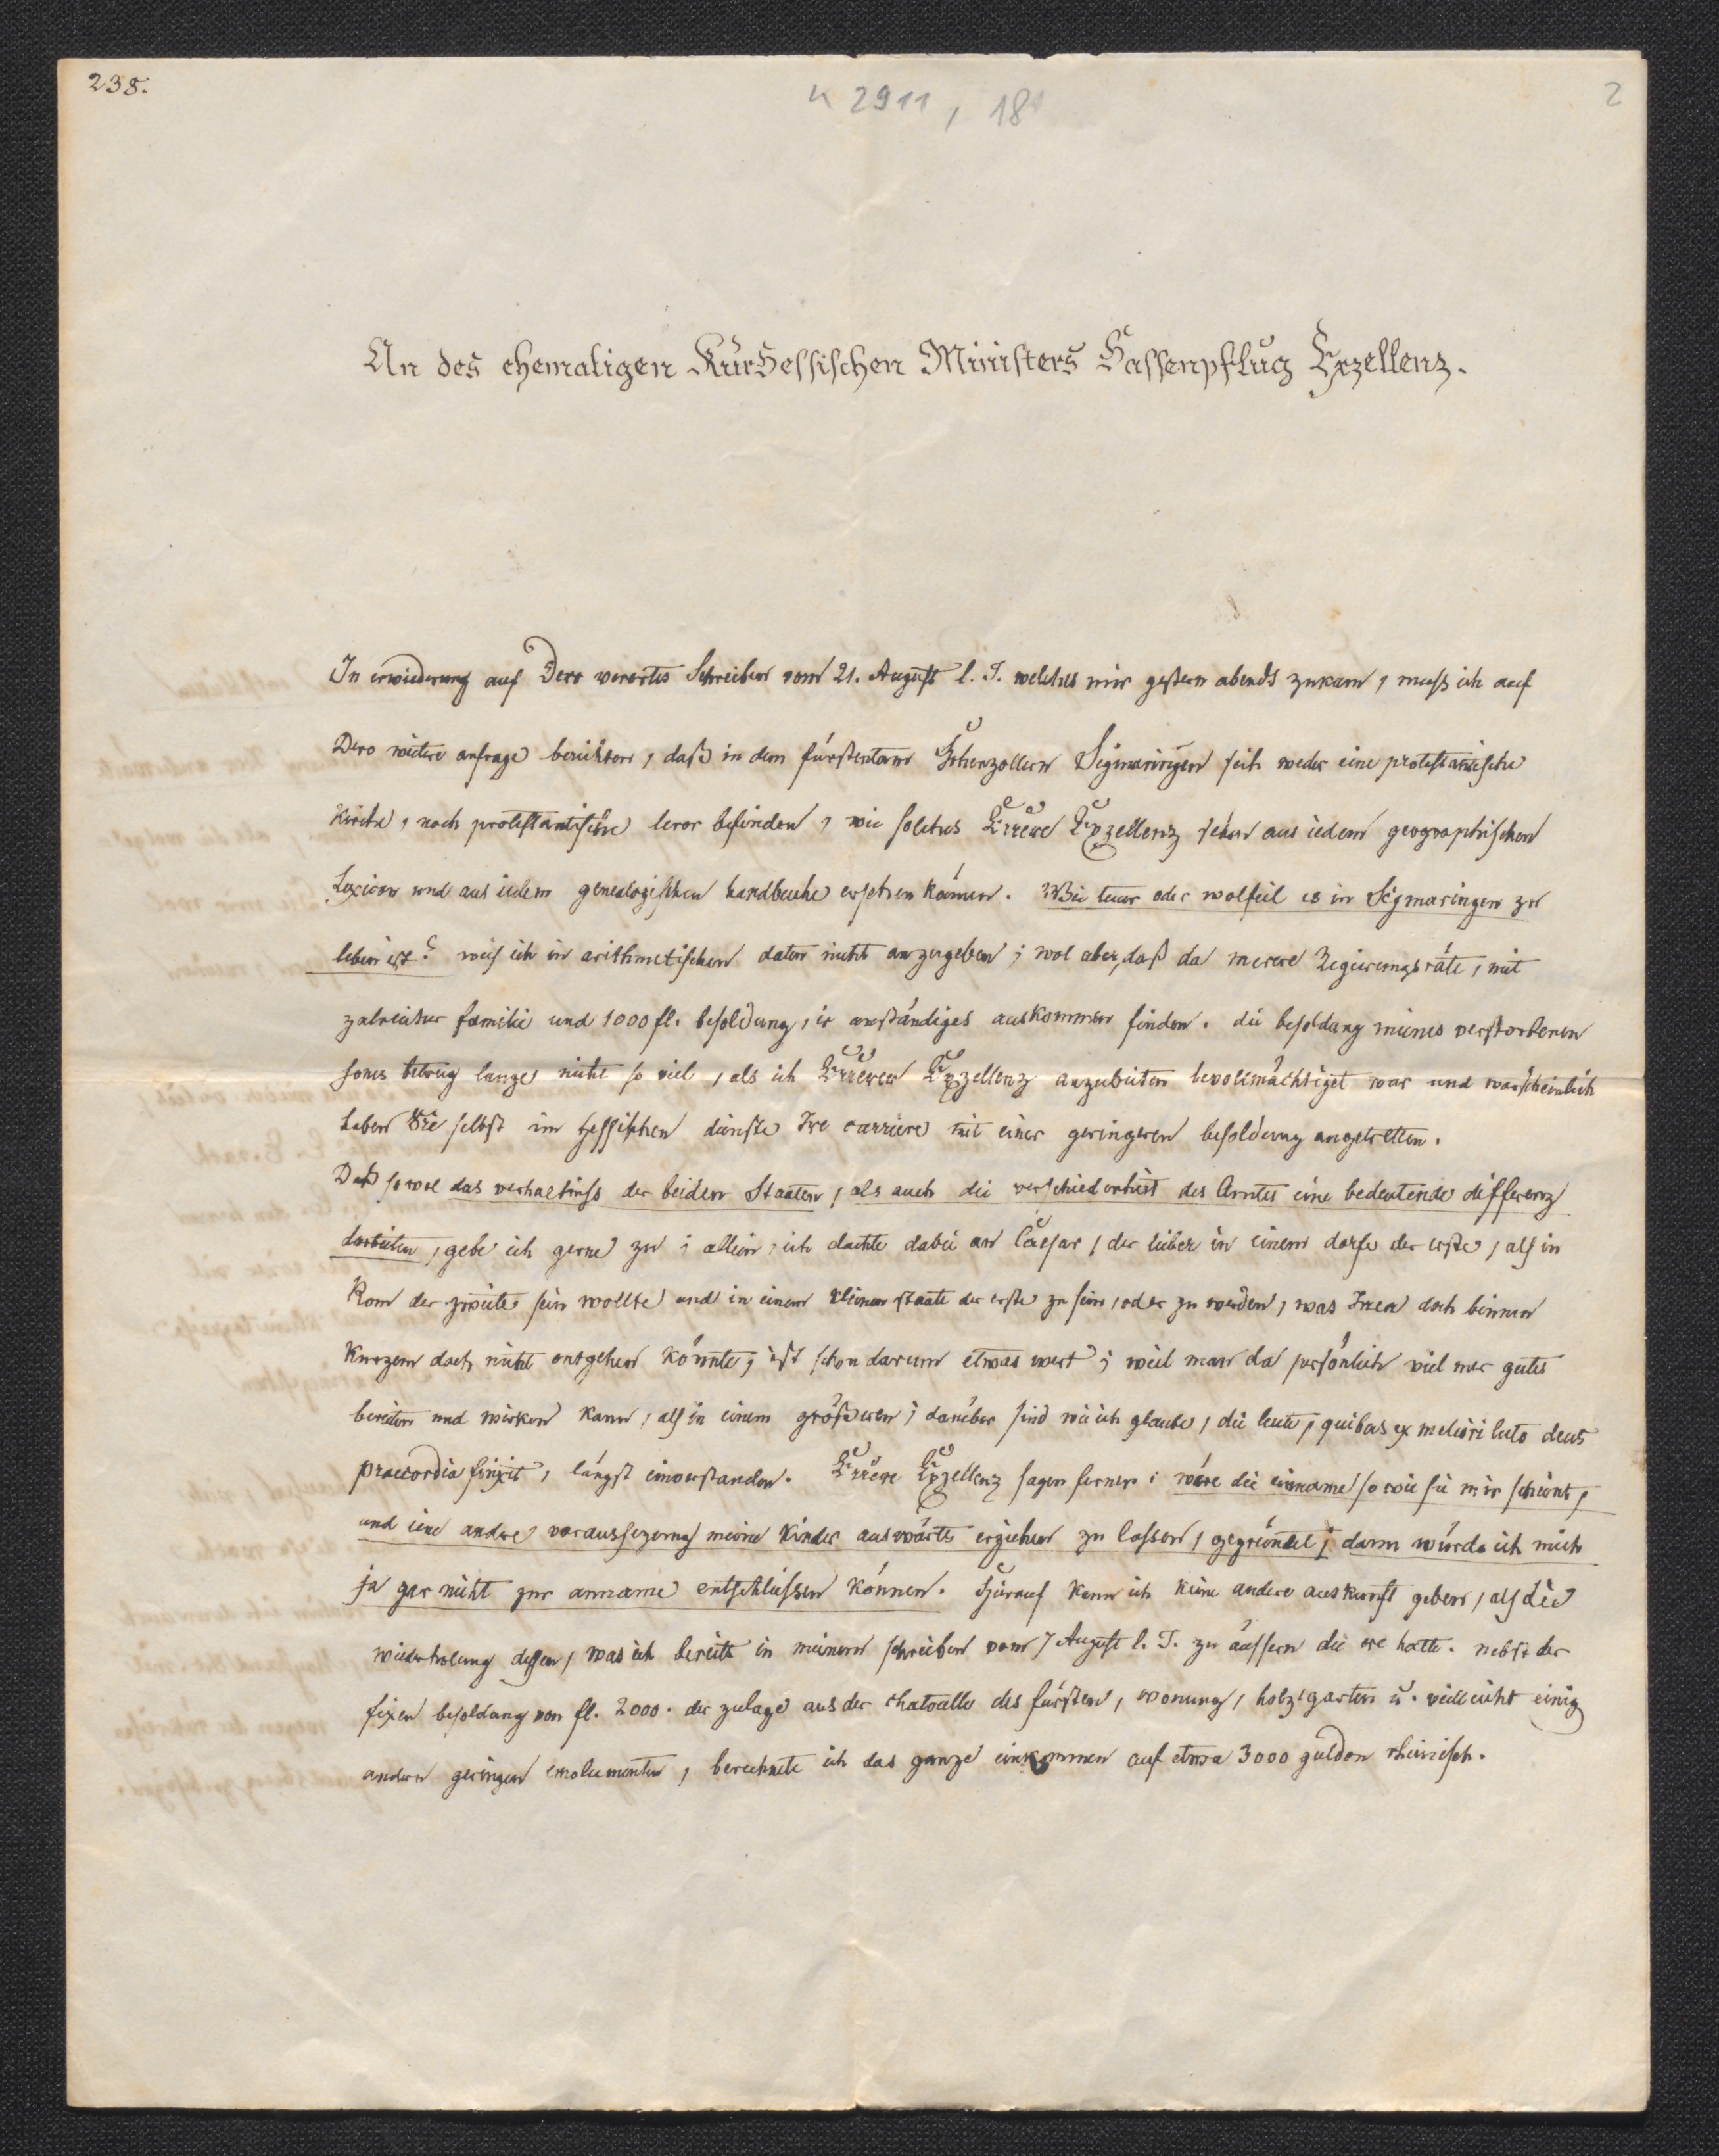 238.
u 2911, 18
2
An des ehemaligen Kurhessischen Ministers Hassenpflug Exzellenz.
In erwiederung auf Dero verertes Schreiben vom 21. August l. J. welches mir gestern abends zukam, muß ich auf
Dero weitere anfrage berichten, daß in dem fürstentum Hohenzollern Sigmaringen sich weder eine protestantische
Kirche, noch protestantische lerer befinden, wie solches Euere Exzellenz schon aus iedem geographischen
Lexicon und aus iedem genealogischen handbuche ersehen können. Wie teuer oder wolfeil es in Sigmaringen zu
leben ist? weis ich in arithmetischen daten nicht anzugeben; wol aber, daß da merere Regierungsräte, mit
zalreicher familie und 1000 fl. besoldung, ir anständiges auskommen finden. die besoldung meines verstorbenen
sones betrug lange nicht so viel, als ich Euerer Exzellenz anzubieten bevollmächtiget war und warscheinlich
haben Sie selbst im hessischen dienste Ire carriere mit einer geringeren besoldung angetretten.
Daß sowol das verhaltniss der beiden Staaten, als auch die verschiedenheit des Amtes eine bedeutende differenz
darbieten, gebe ich gerne zu; allein, ich dachte dabei an Caesar, der lieber in einem dorfe der erste, als in
Rom der zweite sein wollte und in einem kleinen staate der erste zu sein, oder zu werden, was Inen doch binnen
Kurzem doch nicht entgehen könnte, ist schon darum etwas wert; weil man da persönlich viel mer gutes
bereiten und wirken kann, als in einem größeren; darüber sind wie ich glaube, die leute, quibus ex meliori luto deus
praecordia finxit, längst einverstanden. Euere Exzellenz sagen ferner: wäre die einname so wie sie mir scheint,
und iene andre voraussezung meine Kinder auswärts erziehen zu lassen, gegründet; dann würde ich mich
ja gar nicht zur anname entschließen können. Hierauf kann ich keine andere auskunft geben, als die
wiederholung dessen, was ich bereits in meinem schreiben vom 7 August l. J. zu äussern die ere hatte. nebst der
fixen besoldung von fl. 2000. der zulage aus der chatoulle des fürsten, wonung, holz, garten u. vielleicht einig
andern geringen emolumenten, berechnete ich das ganze einkommen auf etwa 3000 gulden rheinisch.